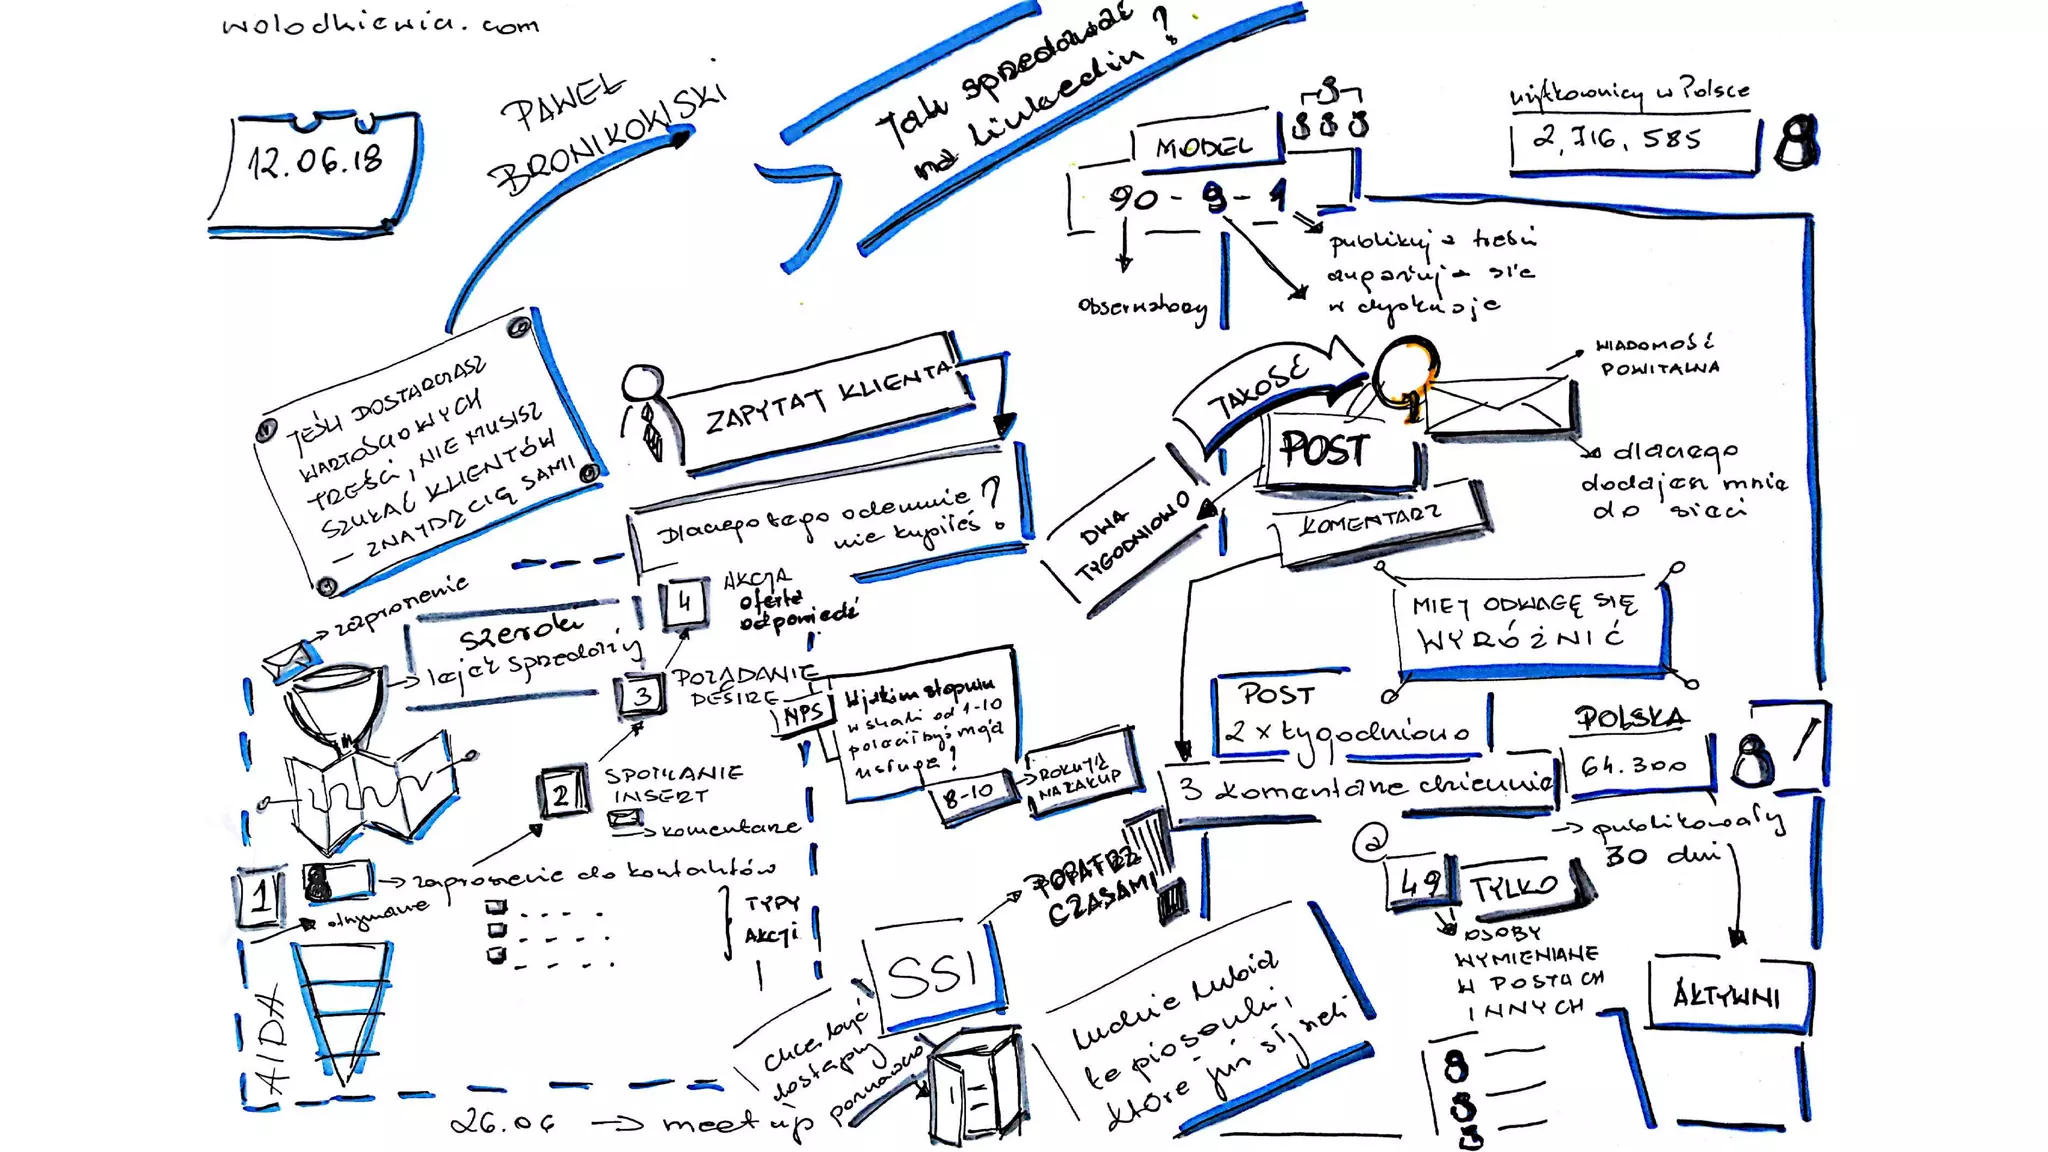 wolodkiewicz.com
12.06.18
PAWEŁ
BRONIKOWSKI
Jak sprzedawać
na linkedin?
MODEL
90 - 9 - 1
obserwatorzy
publikują treści
angażują się
w dyskusje
użytkownicy w Polsce
2,716,585
JEŚLI DOSTARCZASZ
WARTOŚCIOWYCH
TREŚCI, NIE MUSISZ
SZUKAĆ KLIENTÓW
– ZNAJDĄ CIĘ SAMI
ZAPYTAJ KLIENTA
Dlaczego tego odemnie
nie kupiłeś?
JAKOŚĆ
POST
DWA
TYGODNIOWO
KOMENTARZ
WIADOMOŚĆ
POWITALNA
dlaczego
dodajesz mnie
do sieci
MIEJ ODWAGĘ SIĘ
WYRÓŻNIĆ
POST
2 x tygodniowo
3 komentarze dziennie
POLSKA
64.300
publikowały
30 dni
AKTYWNI
zaproszenie
szeroki
lejek sprzedaży
4
AKCJA
oferta
odpowiedź
3
POŻĄDANIE
DESIRE
2
SPOTKANIE
INSERT
komentarze
1
zaproszenie do kontaktów
otrzymane
TYPY
AKCJI
AIDA
NPS
W jakim stopniu
w skali od 1-10
poleciłbyś moją
usługę?
8-10
ROKUJĄ
NA ZAKUP
POPATRZ
CZASAMI
SSI
Chcę być
dostępny
ponownie
Ludzie lubią
te piosenki,
które już
@
49
TYLKO
OSOBY
WYMIENIANE
W POSTACH
INNYCH
26.06 → meet up